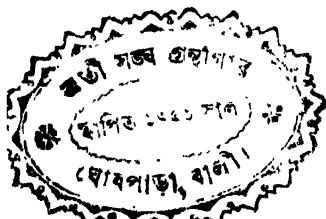 ব্রতী সঙ্ঘ গ্রন্থাগার
স্থাপিত সাল
ঘোষপাড়া, বালী।